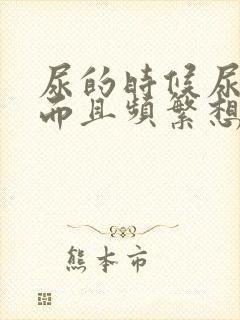 尿的時候尿
而且頻繁想
熊本市